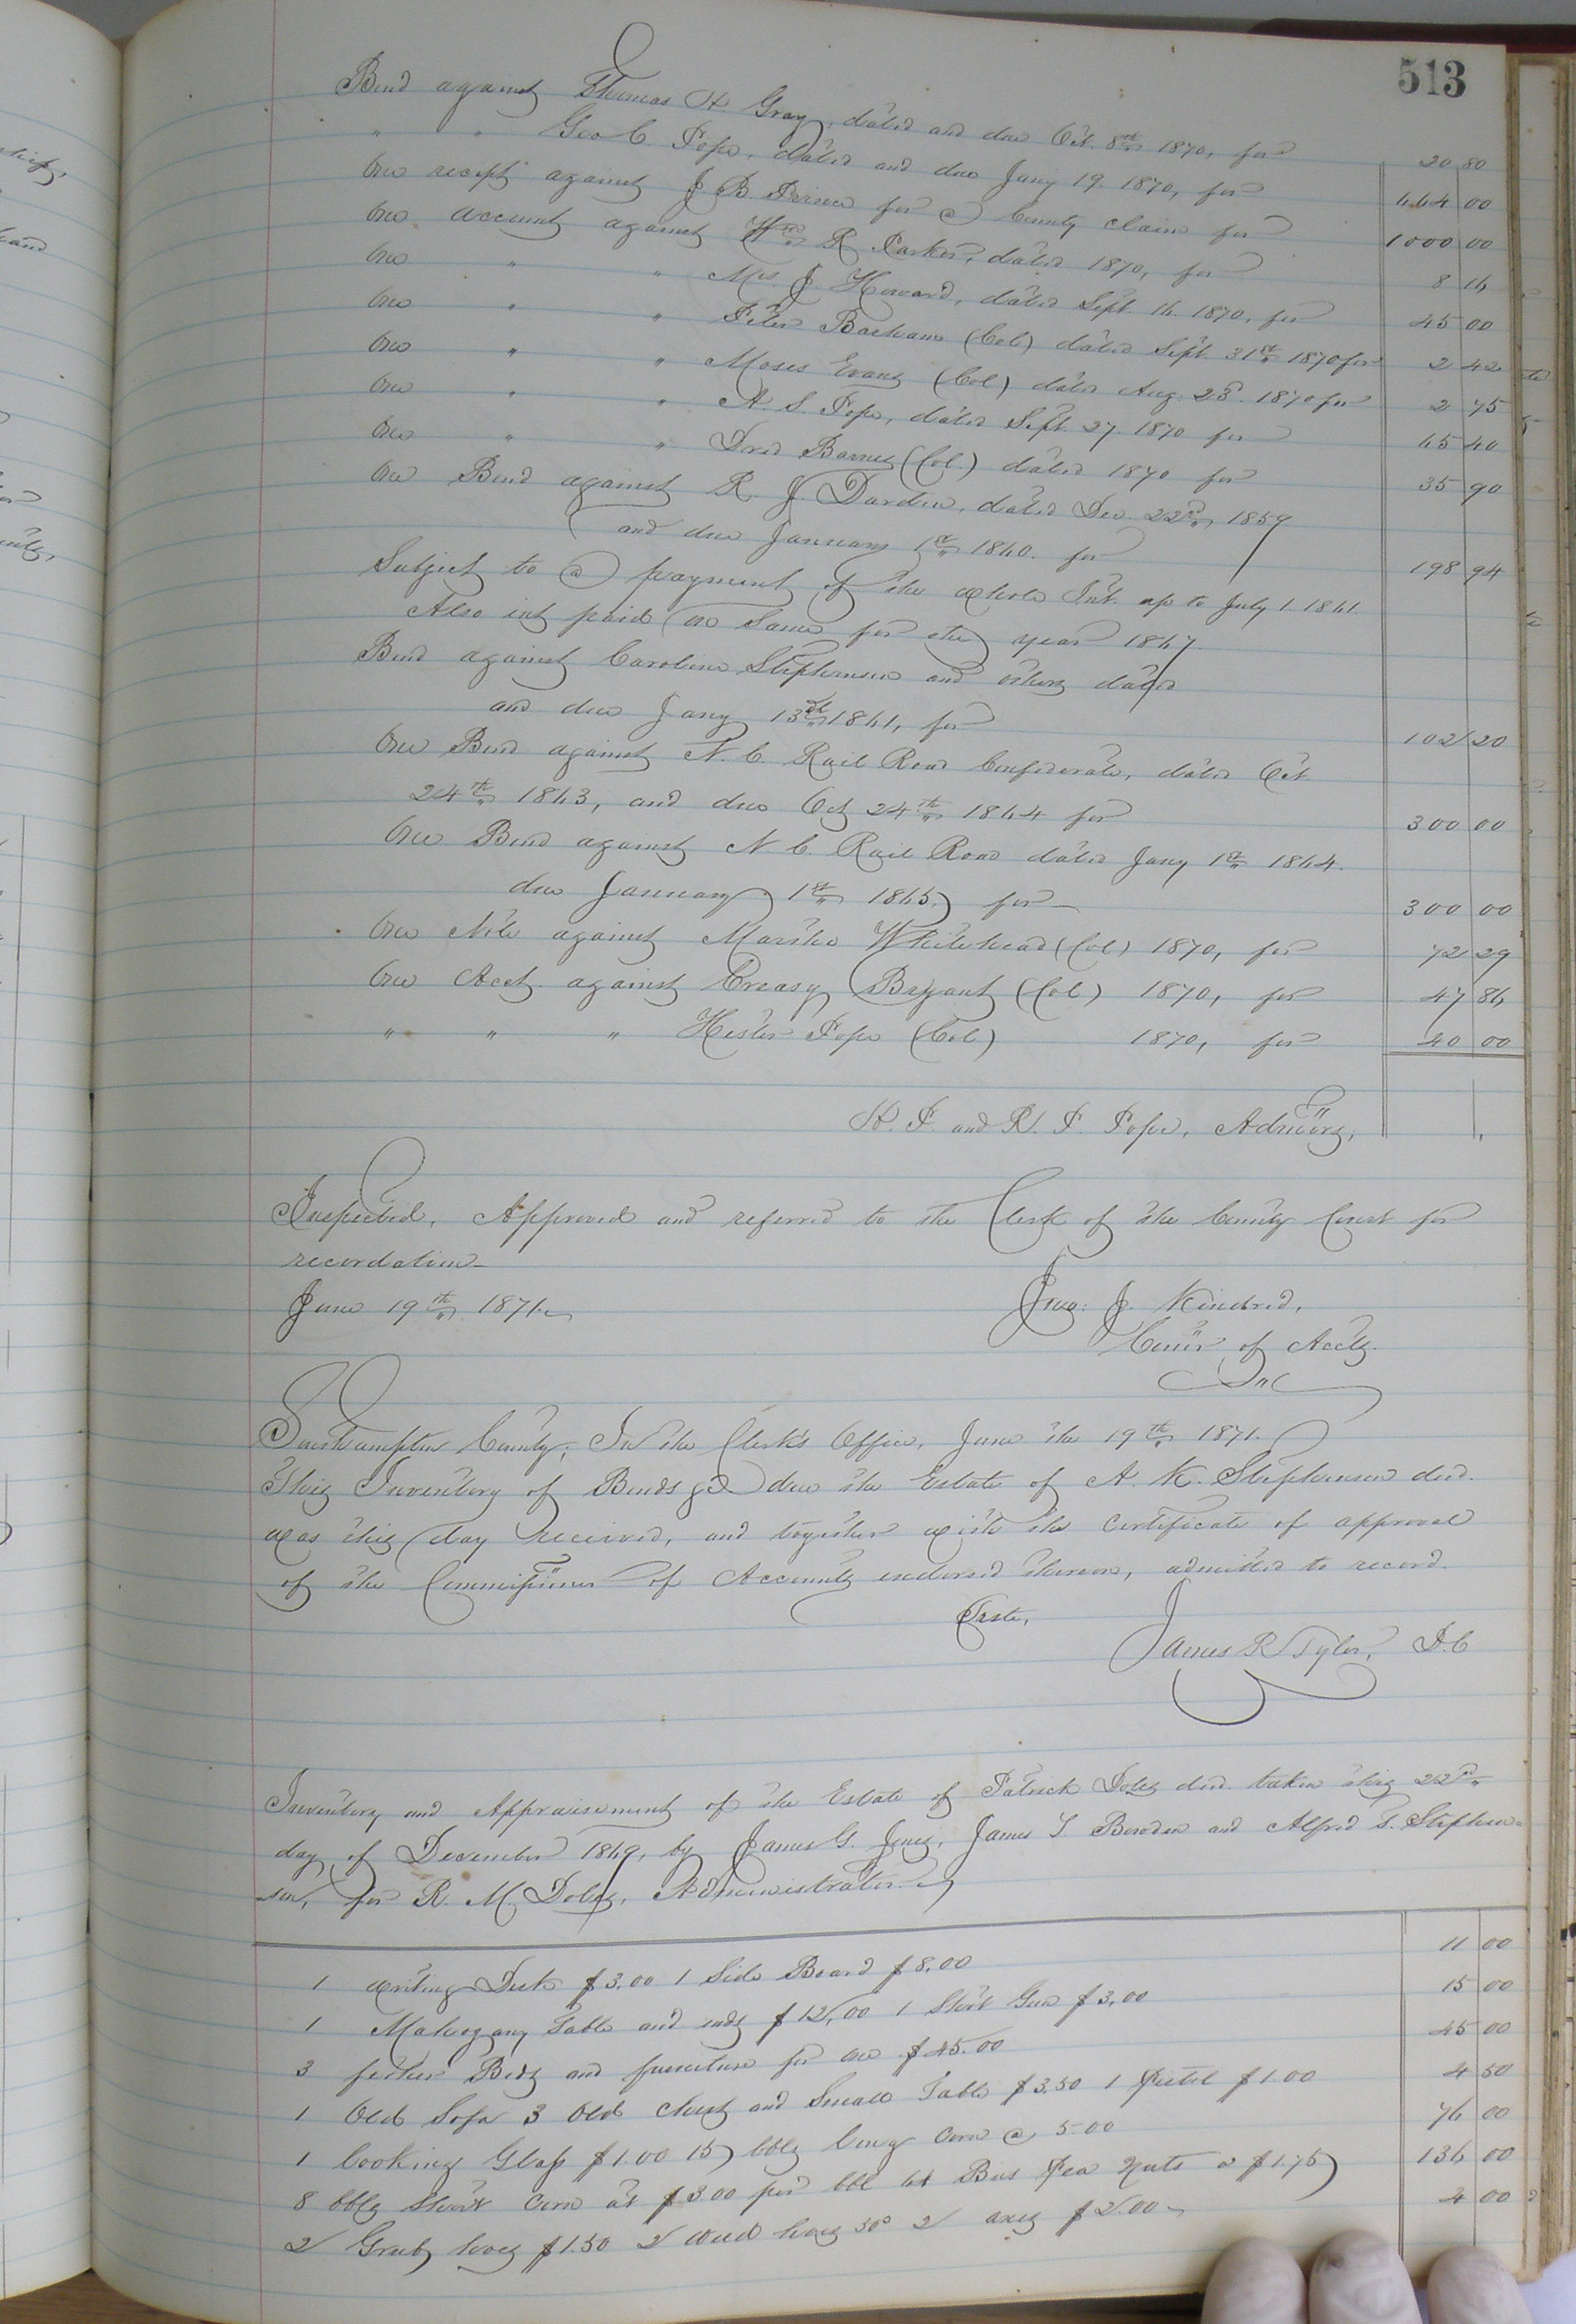 513
Bond against Thomas H. Gray, dated and due Oct. 8th 1870, for 20 80
" " Geo C. Pope, dated and due Jany 19. 1870, for 664 00
One receipt against J. B. Prince for a County claim for 1000 00
One account against Wm R Parker, dated 1870, for 8 16
One " " Mrs. J. Howard, dated Sept. 16. 1870, for 45 00
One " " Peter Barham (Col) dated Sept. 31st 1870 for 2 42
One " " Moses Evans (Col) dated Aug. 23d. 1870 for 2 75
One " " A. S. Pope, dated Sept. 27 1870 for 65 40
One " " Dred Barnes (Col.) dated 1870 for 35 90
One Bond against R. J. Darden, dated Dec. 22nd 1859
and due January 1st 1860. for 198 94
Subject to a payment of the whole Int. up to July 1. 1861.
Also int paid on same for the year 1867.
Bond against Caroline Stephenson and others dated
and due Jany 13th 1861, for 102 20
One Bond against N. C. Rail Road Confederate, dated Oct.
24th 1863, and due Oct 24th 1864 for 300 00
One Bond against N C. Rail Road dated Jany 1st 1864.
due January 1st 1865, for 300 00
One Note against Whitehead (Col) 1870, for 72 29
One Acct. against Creasy Bryant (Col) 1870, for 47 86
" " " Hester Pope (Col) 1870, for 40 00
H. P. and R. P. Pope, Admors,
Inspected, Approved and referred to the Clerk of the County Court for
recordation
June 19th 1871.
Jno: J. Kindred,
Comr of Accts.
Southampton County; In the Clerk's Office, June the 19th 1871.
This Inventory of Bonds &c due the Estate of A. K. Stephenson decd.
was this day received, and together with the certificate of approval
of the Commissioner of Accounts endorsed thereon, admitted to record.
Teste,
James R Tyler, D.C
Inventory and Appraisement of the Estate of Patrick Doles decd. taken this 22nd
day of December 1869, by James G. Jones, James T. Bowden and Alfred T. Stephen-
son, for R. M. Doles, Administrator.
1 writing Desk $3.00 1 Side Board $8.00 11 00
1 Mahogany Table and ends $12.00 1 Shot Gun $3.00 15 00
3 feather Beds and furniture for one $45.00 45 00
1 Old Sofa 3 Old chest and Small Table $3.50 1 pistol $1.00 4 50
1 looking Glass $1.00 15 bbls long corn @ 5.00 76 00
8 bbls short corn at $3.00 per bbl 64 Bus Pea Nuts @ $1.75 136 00
2 Grub hoes $1.50 2 weed hoes 50c 2 axes $2.00 4 00